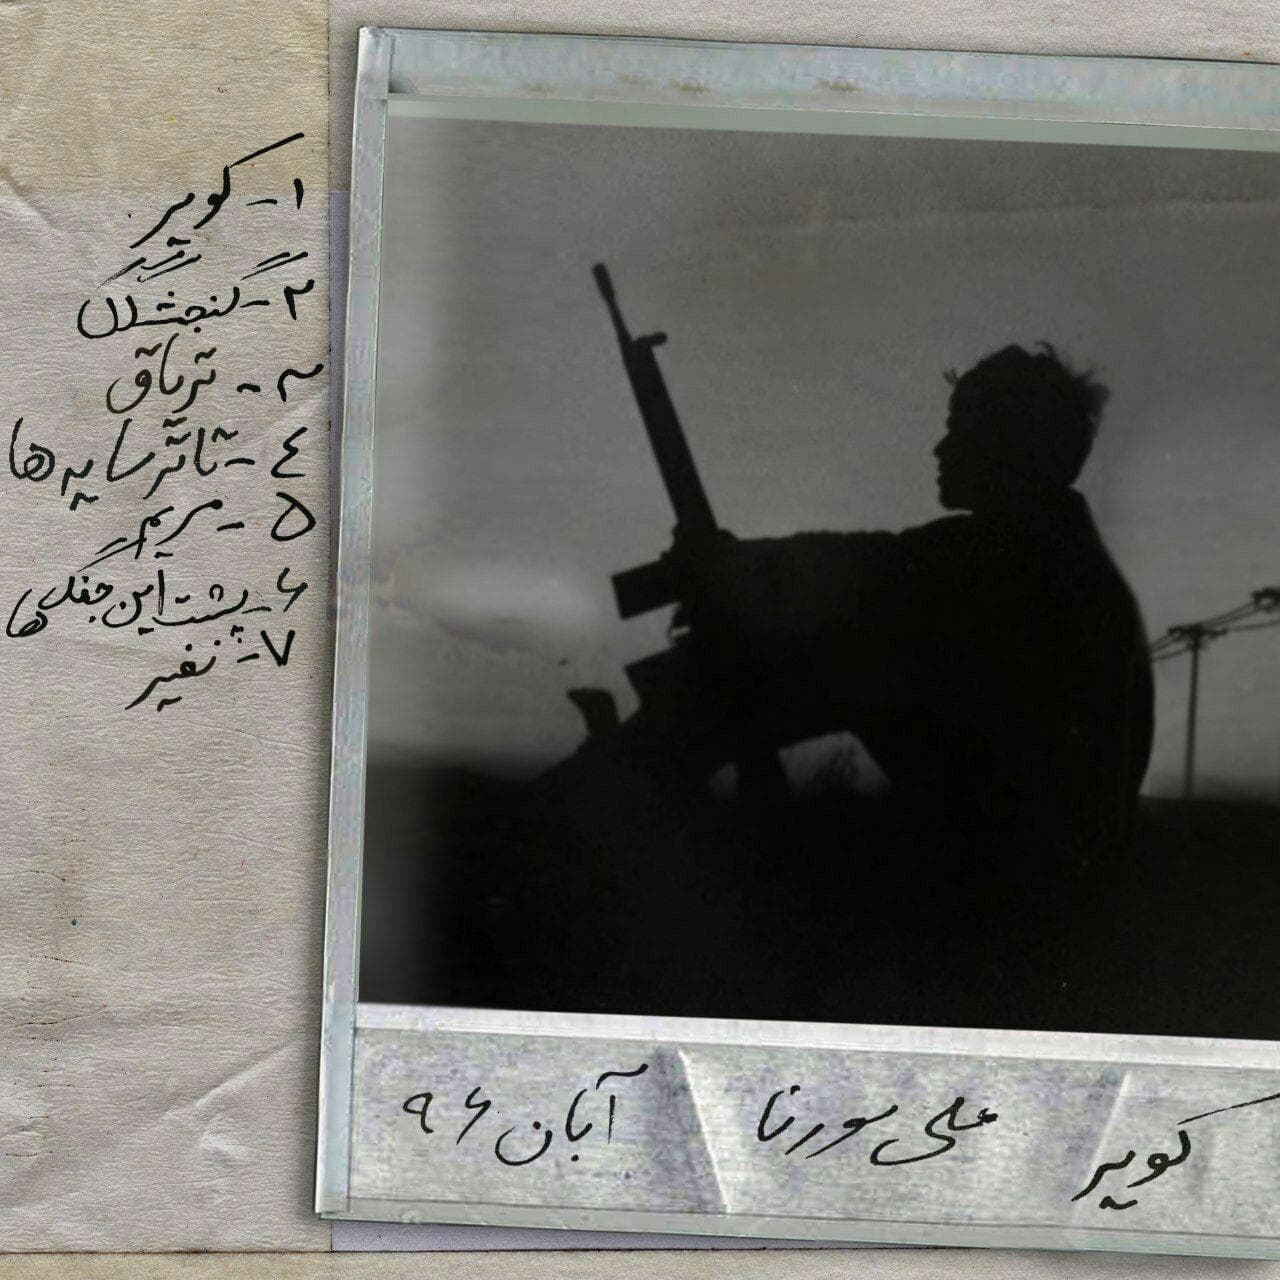 ۱- کویر
۲- گنجشگک
۳- تریاق
٤- تاتر سایه ها
۵- مریم
۶- پشت این جنگل ها
۷- نفیر
کویر علی سورنا آبان ۹۶